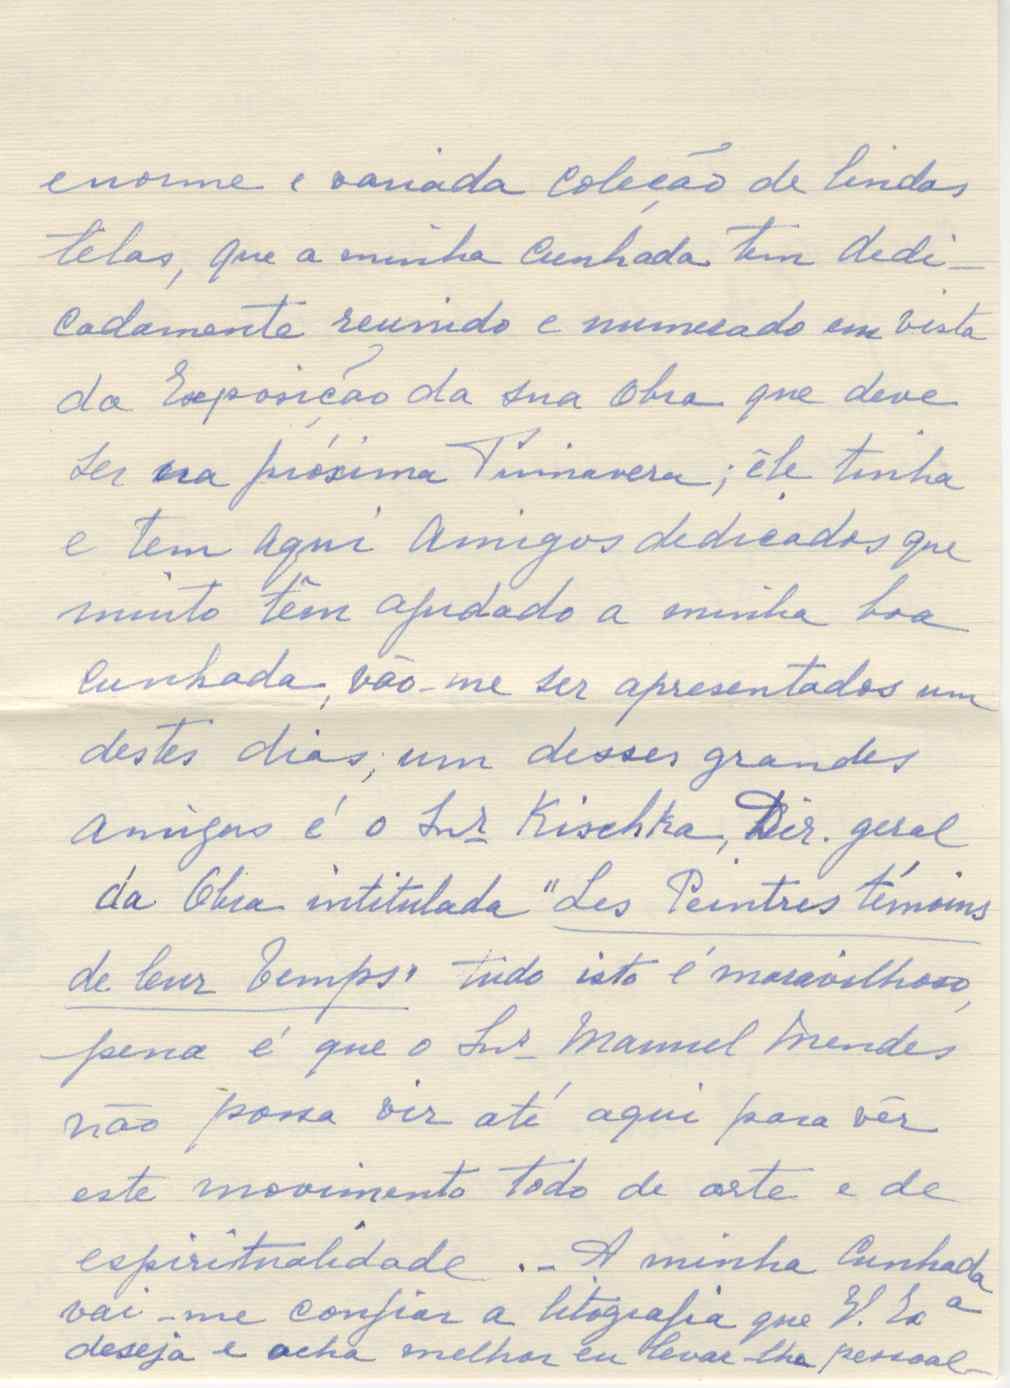 enorme e variada coleção de lindas
télas, que a minha cunhada tem dedi-
cadamente reunido e numerado em vista
da Exposição da sua Obra que deve
ser na próxima Primavera; êle tinha
e tem aqui Amigos dedicados que
muito têm ajudado a minha boa
cunhada, vão-me ser apresentados um
destes dias; um desses grandes
amigos é o Snr. Kischka, Dir. geral
da Obra intitulada "Les Peintres témoins
de leur Temps" tudo isto é maravilhoso,
pena é que o Snr. Manuel Mendes
não possa vir até aqui para vêr
este movimento todo de arte e de
espiritualidade .- A minha Cunhada
vai-me confiar a litografia que V. Exª
deseja e acha melhor eu levar-lha pessoal-